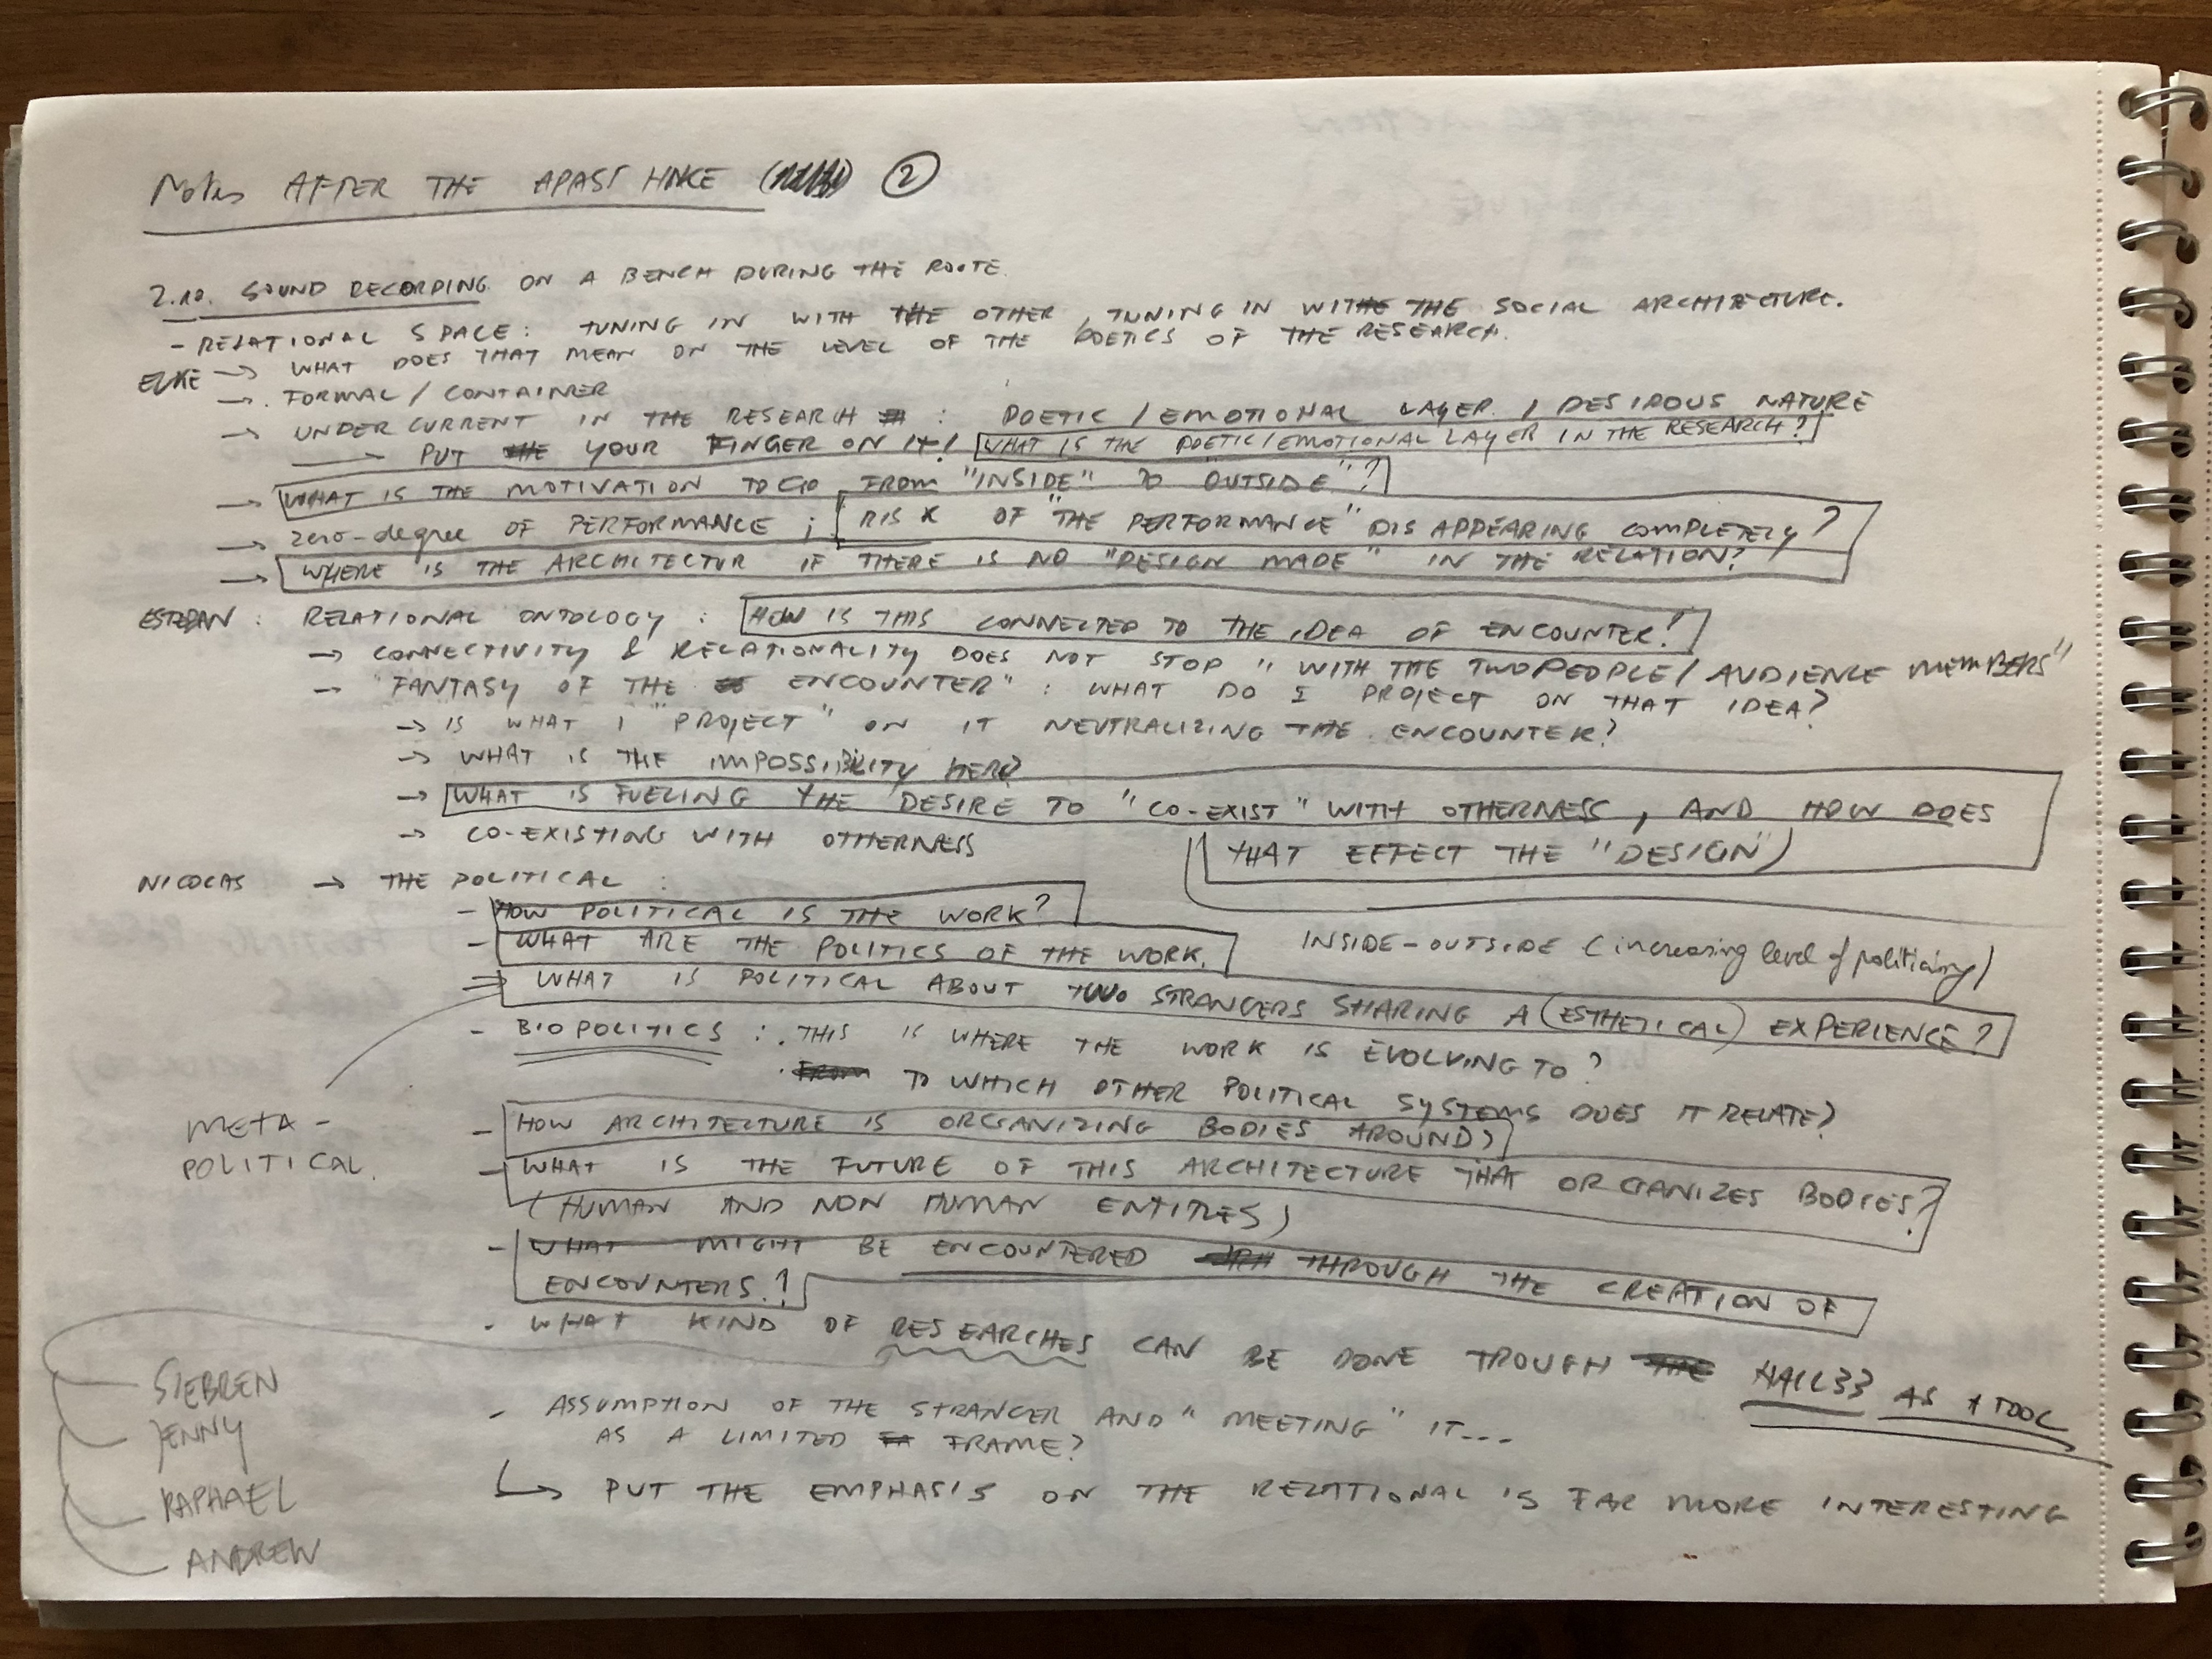 Notes AFTER THE APASS HWCE ②
2.10. SOUND RECORDING ON A BENCH DURING THE ROUTE.
- RELATIONAL SPACE: TUNING IN WITH THE OTHER, TUNING IN WITH THE SOCIAL ARCHITECTURE.
ELKE → WHAT DOES THAT MEAN ON THE LEVEL OF THE POETICS OF THE RESEARCH.
→ FORMAL / CONTAINER
→ UNDER CURRENT IN THE RESEARCH : POETIC / EMOTIONAL LAYER / DESIROUS NATURE
→ PUT YOUR FINGER ON IT! WHAT IS THE POETIC/EMOTIONAL LAYER IN THE RESEARCH?
→ WHAT IS THE MOTIVATION TO GO FROM "INSIDE" TO "OUTSIDE"?
→ zero-degree OF PERFORMANCE ; RISK OF "THE PERFORMANCE" DISAPPEARING COMPLETELY?
→ WHERE IS THE ARCHITECTUR IF THERE IS NO "DESIGN MADE" IN THE RELATION?
ESTEBAN : RELATIONAL ONTOLOGY : HOW IS THIS CONNECTED TO THE IDEA OF ENCOUNTER!
→ CONNECTIVITY & RELATIONALITY DOES NOT STOP "WITH THE TWO PEOPLE / AUDIENCE MEMBERS"
→ "FANTASY OF THE ENCOUNTER" : WHAT DO I PROJECT ON THAT IDEA?
→ IS WHAT I "PROJECT" ON IT NEUTRALIZING THE ENCOUNTER?
→ WHAT IS THE IMPOSSIBILITY HERE?
→ WHAT IS FUELING THE DESIRE TO "CO-EXIST" WITH OTHERNESS, AND HOW DOES
THAT EFFECT THE "DESIGN")
→ CO-EXISTING WITH OTHERNESS
NICOLAS → THE POLITICAL :
- HOW POLITICAL IS THE WORK?
- WHAT ARE THE POLITICS OF THE WORK.
INSIDE-OUTSIDE (increasing level of
⇒ WHAT IS POLITICAL ABOUT TWO STRANGERS SHARING A (ESTHETICAL) EXPERIENCE?
- BIOPOLITICS : . THIS IS WHERE THE WORK IS EVOLVING TO?
. TO WHICH OTHER POLITICAL SYSTEMS DOES IT RELATE?
META-
POLITICAL.
- HOW ARCHITECTURE IS ORGANIZING BODIES AROUND?
- WHAT IS THE FUTURE OF THIS ARCHITECTURE THAT ORGANIZES BODIES?
(HUMAN AND NON HUMAN ENTITIES)
- WHAT MIGHT BE ENCOUNTERED THROUGH THE CREATION OF
ENCOUNTERS.?
- WHAT KIND OF RESEARCHES CAN BE DONE TROUGH HALL33 AS A TOOL
SIEBREN
JENNY
RAPHAEL
ANDREW
- ASSUMPTION OF THE STRANGER AND "MEETING" IT...
AS A LIMITED FRAME?
↳ PUT THE EMPHASIS ON THE RELATIONAL IS FAR MORE INTERESTING